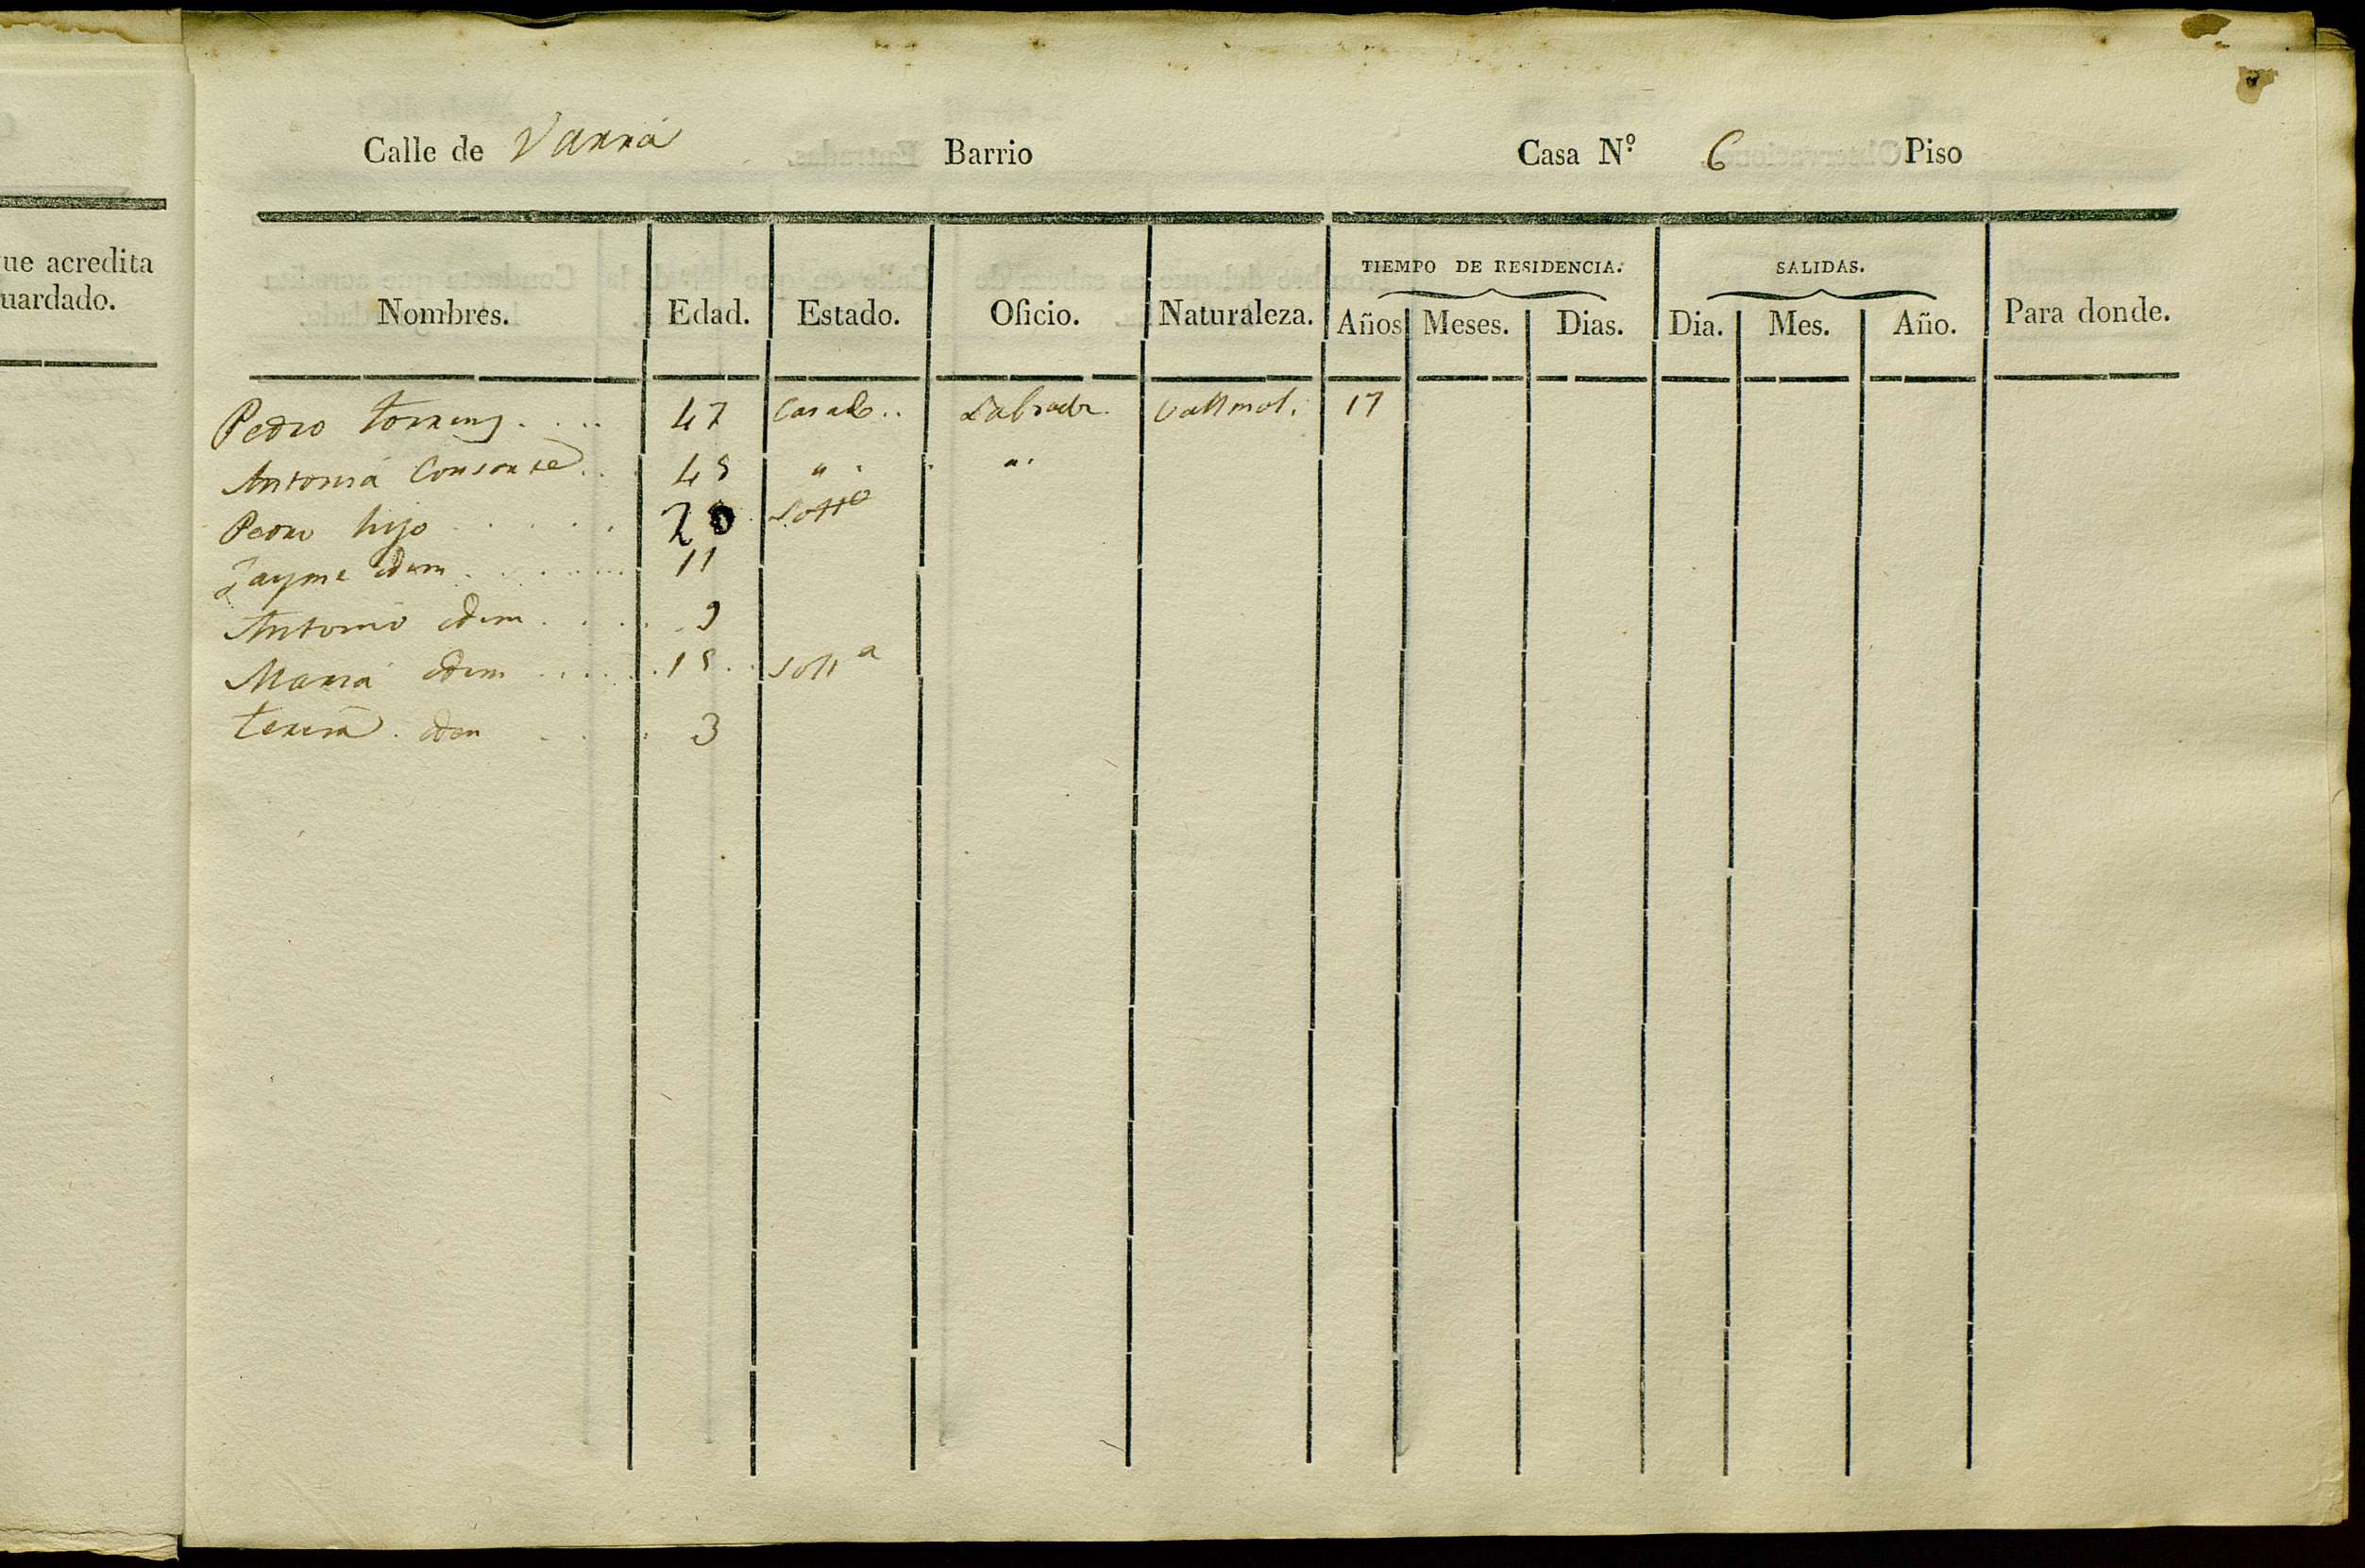 ue acredita
uardado.
Calle de Varrá Barrio Casa N.º 6 Piso
TIEMPO DE RESIDENCIA. SALIDAS.
Nombres. Edad. Estado. Oficio. Naturaleza. Años Meses. Dias. Dia. Mes. Año. Para donde.
Pedro Torrens .... 47 Casado.. Labrador. Vallmol. 17
Antonia Consorte .. 45 " . . ".
Pedro hijo ..... 20 Soltº
Jayme idem ...... 11
Antonio idem .... 9
Maria idem ..... 15 .. Soltª
Teresa . idem ... 3